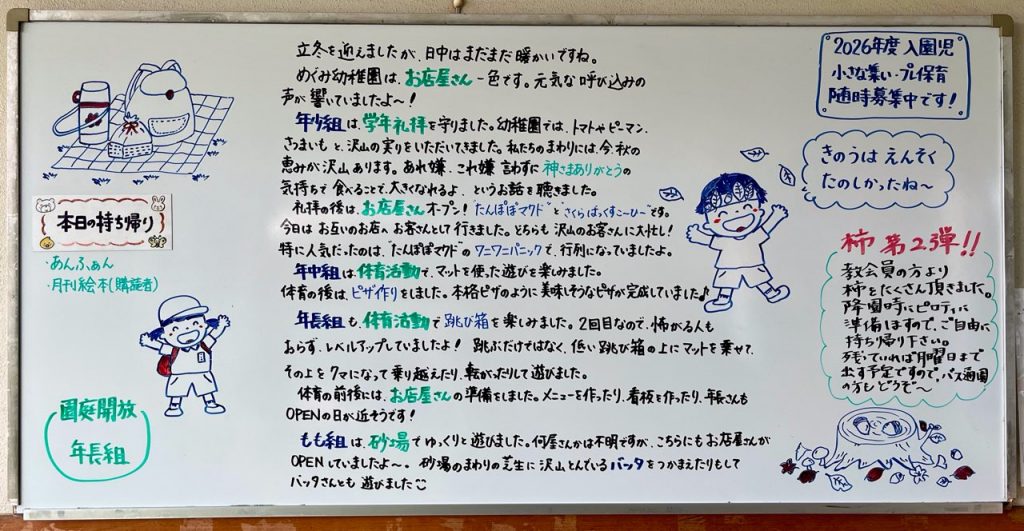 立冬を迎えましたが、日中はまだまだ暖かいですね。
めぐみ幼稚園は、お店屋さん一色です。元気な呼び込みの
声が響いていましたよ〜！
年少組は、学年礼拝を守りました。幼稚園では、トマトやピーマン、
さつまいもと、沢山の実りをいただいてきました。私たちのまわりには、今、秋の
恵みが沢山あります。あれ嫌、これ嫌言わずに神さまありがとうの
気持ちで食べることで、大きくなれるよ、というお話を聴きました。
礼拝の後は、お店屋さんオープン！"たんぽぽマクド"と"さくらばっくすこーひー"です。
今日はお互いのお店へお客さんとして行きました。どちらも沢山のお客さんに大忙し！
特に人気だったのは、"たんぽぽマクド"のワニワニパニックで、行列になっていましたよ。
年中組は、体育活動で、マットを使った遊びを楽しみました。
体育の後は、ピザ作りをしました。本格ピザのように美味しそうなピザが完成していました♪
年長組も、体育活動で跳び箱を楽しみました。2回目なので、怖がる人も
おらず、レベルアップしていましたよ！跳ぶだけではなく、低い跳び箱の上にマットを乗せて、
その上をクマになって乗り越えたり、転がったりして遊びました。
体育の前後には、お店屋さんの準備をしました。メニューを作ったり、看板を作ったり、年長さんも
OPENの日が近そうです！
もも組は、砂場でゆっくりと遊びました。何屋さんかは不明ですが、こちらにもお店屋さんが
OPENしていましたよ〜。砂場のまわりの芝生に沢山とんでいるバッタをつかまえたりもして
バッタさんとも遊びました
本日の持ち帰り
・あんふぁん
・月刊絵本(購読者)
園庭開放
年長組
2026年度 入園児
小さな集い・プレ保育
随時募集中です！
きのうは えんそく
たのしかったね〜
柿 第2弾!!
教会員の方より
柿をたくさん頂きました。
降園時にピロティに
準備しますので、ご自由に
持ち帰り下さい。
残っていれば月曜日まで
出す予定ですので、バス通園
の方もどうぞ〜